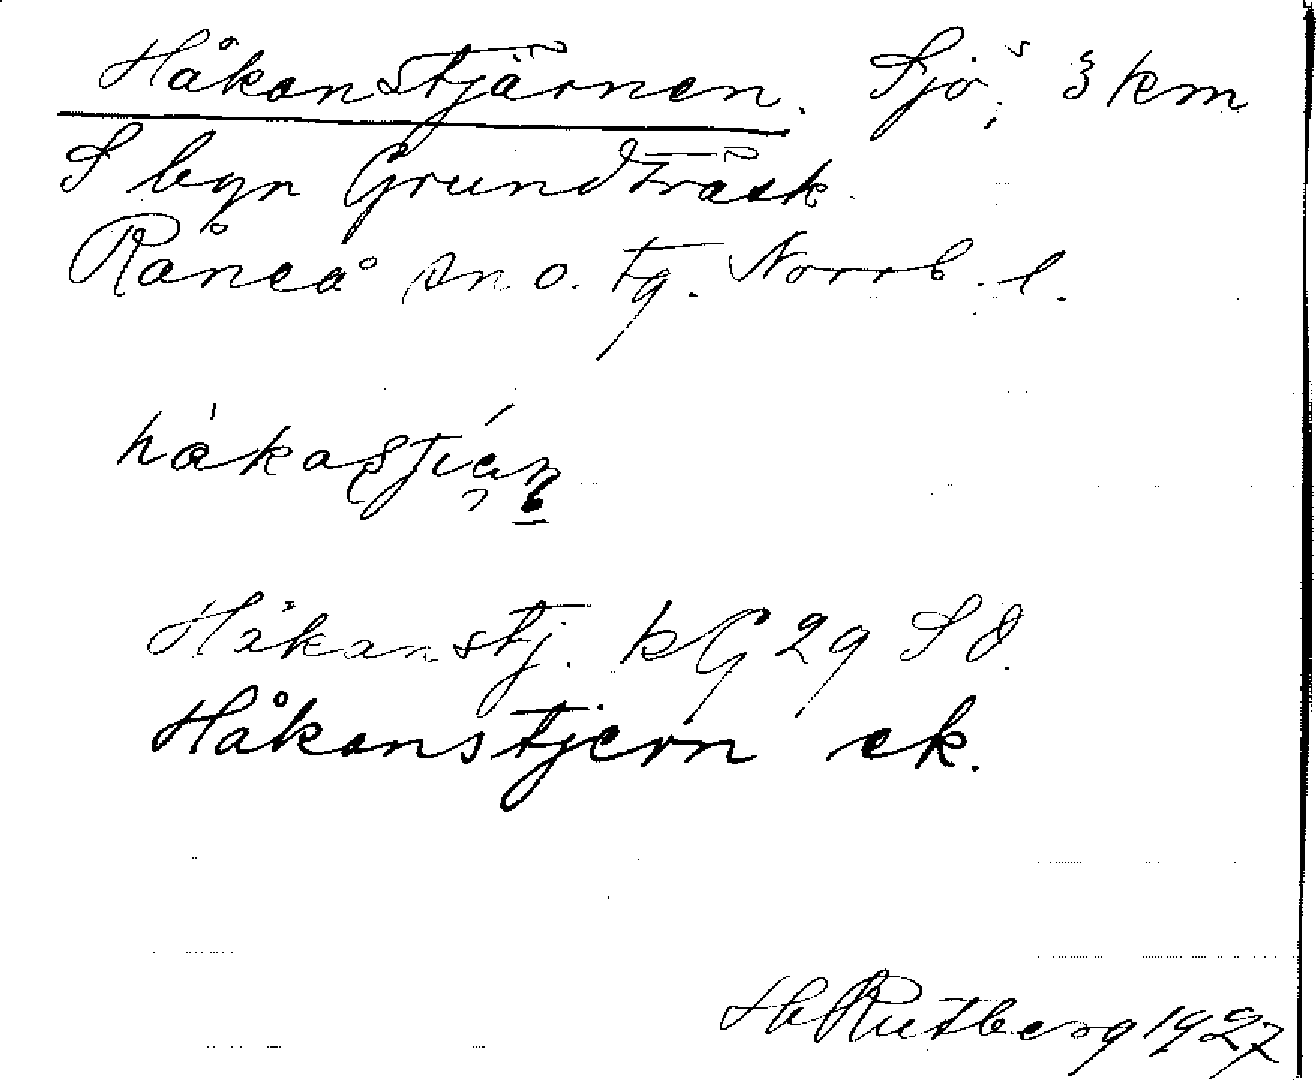 Håkanstjärnen. Sjö, 3 km
S byn Grundträsk.
Råneå sn o. tg. Norrb. l.
Håkanstj. kG 29 SO.
Håkanstjern ek.
H Rutberg 1927